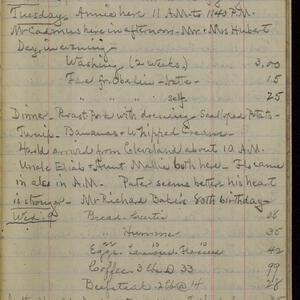 Tuesday. Annie here 11 A.M. to 11:40 P.M.
McAdams here in afternoon - Mr + Mrs Hubert
Day, in evening -
Washing (2 weeks) 3,00
Fare for Obelin - late - 15
" " " self 25
Dinner - Roast Pork with dressing - Scalloped Potatoes -
Turnip - Bananas + Whipped Cream -
Harold arrived from Cleveland about 10 A.M.
Uncle Eliab + Aunt Mattie both here - Flo came
in also in A.M. Pater seems better his heart
is stronger - Mr Richard Baker's 80th birthday -
Wed. 9 Bread - Curtis 06
" Hummer 35
Eggs - 42
Coffee 3 lb @ 33 99
Beefsteak 2 lb @ 14 28